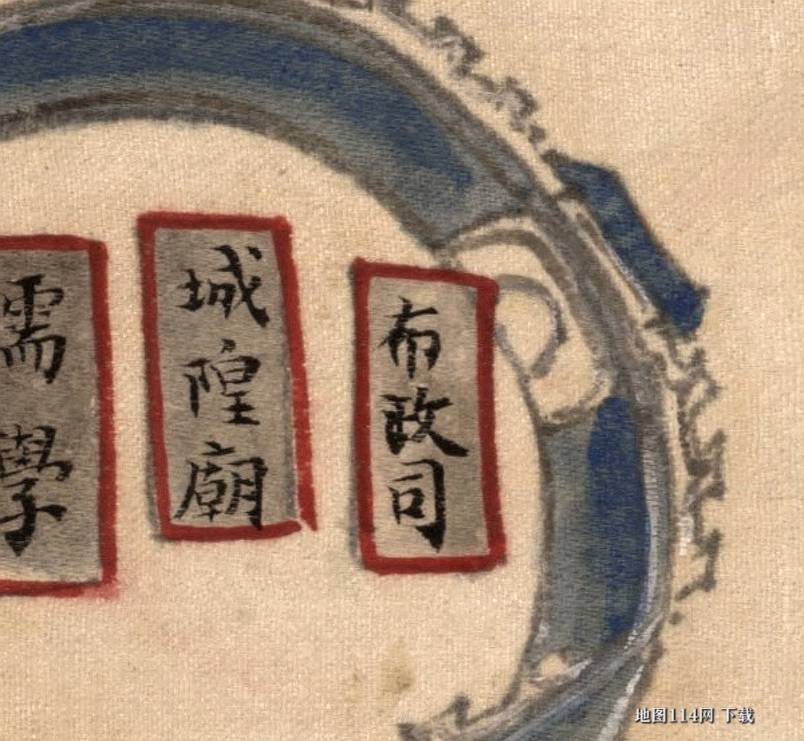 布政司
城隍廟
儒學
地图114网 下载